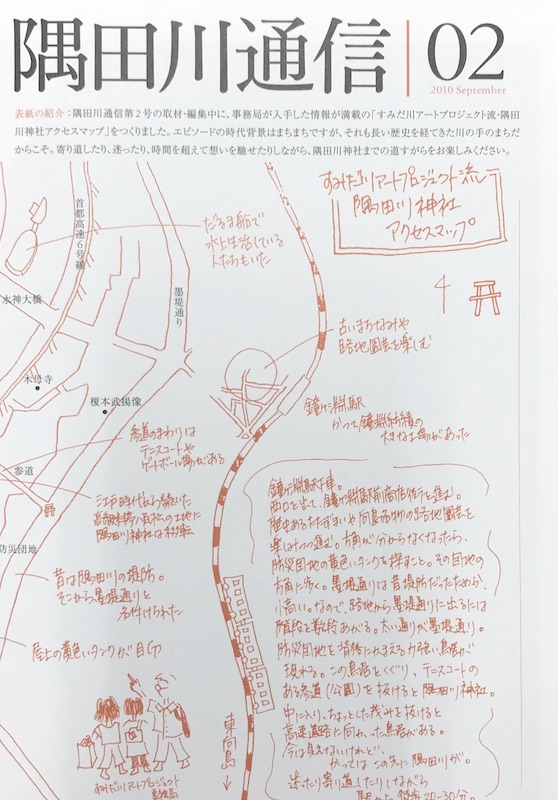 隅田川通信
02
2010 September
表紙の紹介：隅田川通信第2号の取材・編集中に、事務局が入手した情報が満載の「すみだ川アートプロジェクト流・隅田
川神社アクセスマップ」をつくりました。エピソードの時代背景はまちまちですが、それも長い歴史を経てきた川の手のまちだ
からこそ。寄り道したり、迷ったり、時間を超えて想いを馳せたりしながら、隅田川神社までの道すがらをお楽しみください。
すみだ川アートプロジェクト流
隅田川神社
アクセスマップ
首都高速6号線
だるま船で
水上生活している
人たちもいた
水神大橋
墨堤通り
古いまちなみや
路地園芸を楽しむ
木母寺
榎本武揚像
鐘ヶ淵駅
かつて鐘淵紡績の
大きな工場があった
参道のまわりは
テニスコートや
ゲートボール場がある
参道
江戸時代から続いた
高級料亭
隅田川神社は移転
防災団地
昔は隅田川の堤防。
そこから墨堤通りと
名付けられた
屋上の黄色いタンクが目印
鐘ヶ淵駅下車。
西口を出て、鐘ヶ淵駅前商店街を進む。
歴史あるたたずまいや向島名物の路地園芸を
楽しみつつ進む。方角が分からなくなったら、
防災団地の黄色いタンクを探すこと。その団地の
方角に歩く。墨堤通りは昔堤防だったためか、
小高い。なので、路地から墨堤通りに出るには
階段を数段あがる。太い通りが墨堤通り。
防災団地を背後にかまえる力強い鳥居が
現れる。この鳥居をくぐり、テニスコートの
ある参道（公園）を抜けると隅田川神社。
中に入り、ちょっとした茂みを抜けると
高速道路に向かった鳥居がある。
今は見えないけれど、
かつてはこの先に隅田川が。
迷ったり寄り道したりしながら
徒歩20-30分。
東向島
すみだ川アートプロジェクト
事務局